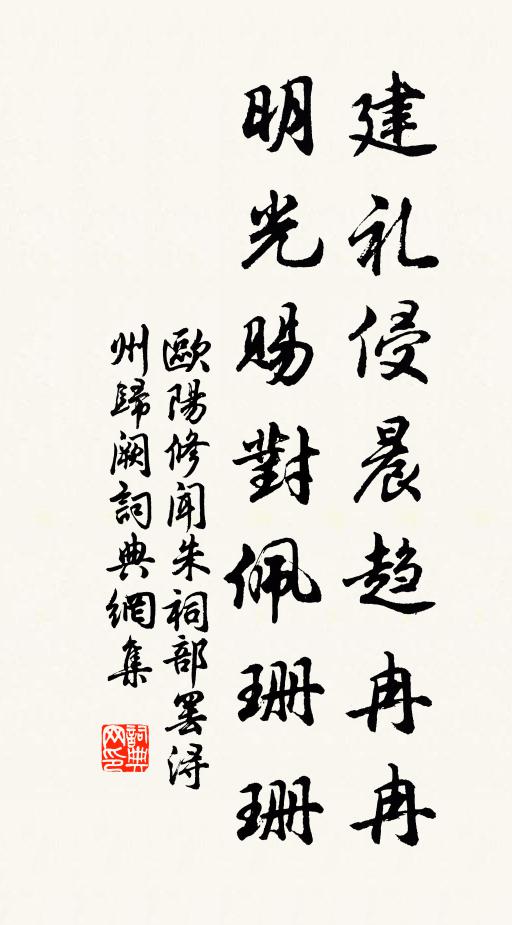 建礼侵晨趋冉冉
明光賜對佩珊珊
歐陽修闻朱祠部罢浔
州歸阙詞典網集
詞典网印